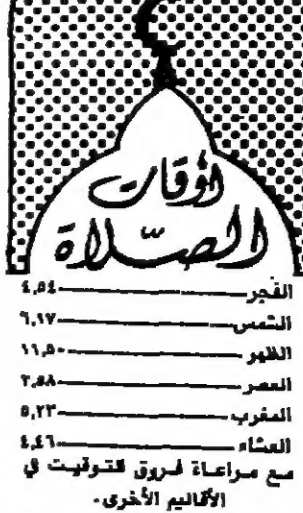 أوقات
الصلاة
الفجر ٤,٥٤
الشمس ٦,١٧
الظهر ١١,٥٠
العصر ٢,٥٨
المغرب ٥,٢٣
العشاء ٤,٤٦
مع مراعاة فروق التوقيت في
الأقاليم الأخرى.